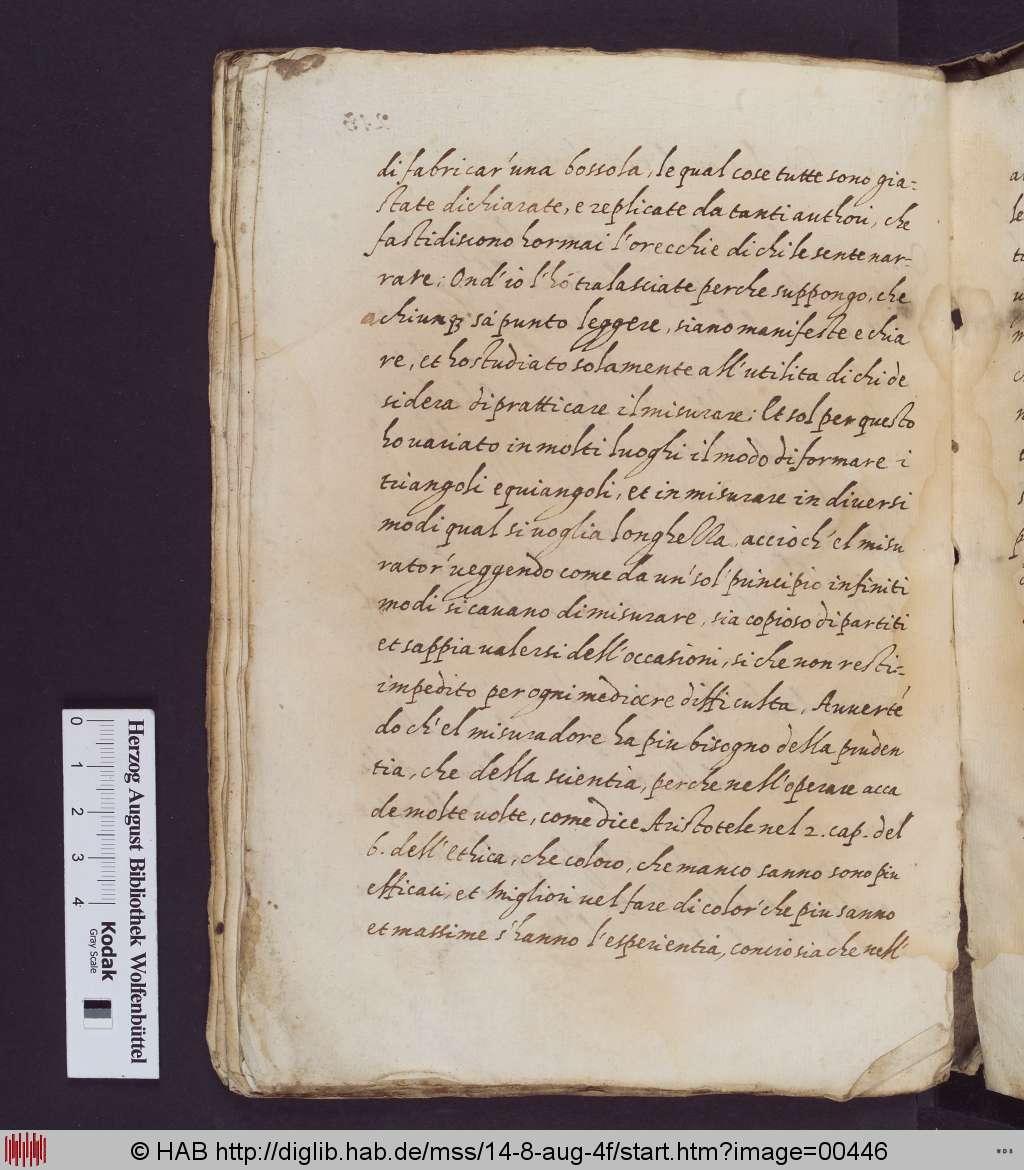 di fabricar' una bossola, le qual cose tutte sono gia-
state dichiarate, e replicate da tanti authori, che
fastidiscono hormai l'orecchie di chi le sente nar-
rare; Ond'io l'hò tralasciate perche suppongo, che
a chiunq3 sá punto leggere, siano manifeste e chia
re, et ho studiato solamente all'utilita di chi de
sidera di pratticare il misurare; Et sol per questo
ho variato in molti luoghi il modo di formare i
triangoli equiangoli, et in misurare in diversi
modi qual si voglia longhezza, accioch'el misu
rator' veggendo come da un' sol' principio infiniti
modi si cavano di misurare, sia copioso di partiti
et sappia valersi dell'occasioni, si che non resti-
impedito per ogni mediocre difficulta. Avverté
do ch'el misuradore ha piu bisogno della pruden
tia, che della scientia, perche nell'operare acca
de molte volte, come dice Aristotele nel 2. cap. del
6. dell'Ethica, che coloro, che manco sanno sono piu
efficaci, et migliori nel fare di color' che piu sanno
et massime s'hanno l'esperientia, conciosia che nell'
Herzog August Bibliothek Wolfenbüttel
0 1 2 3 4
Kodak
Gray Scale
© HAB http://diglib.hab.de/mss/14-8-aug-4f/start.htm?image=00446